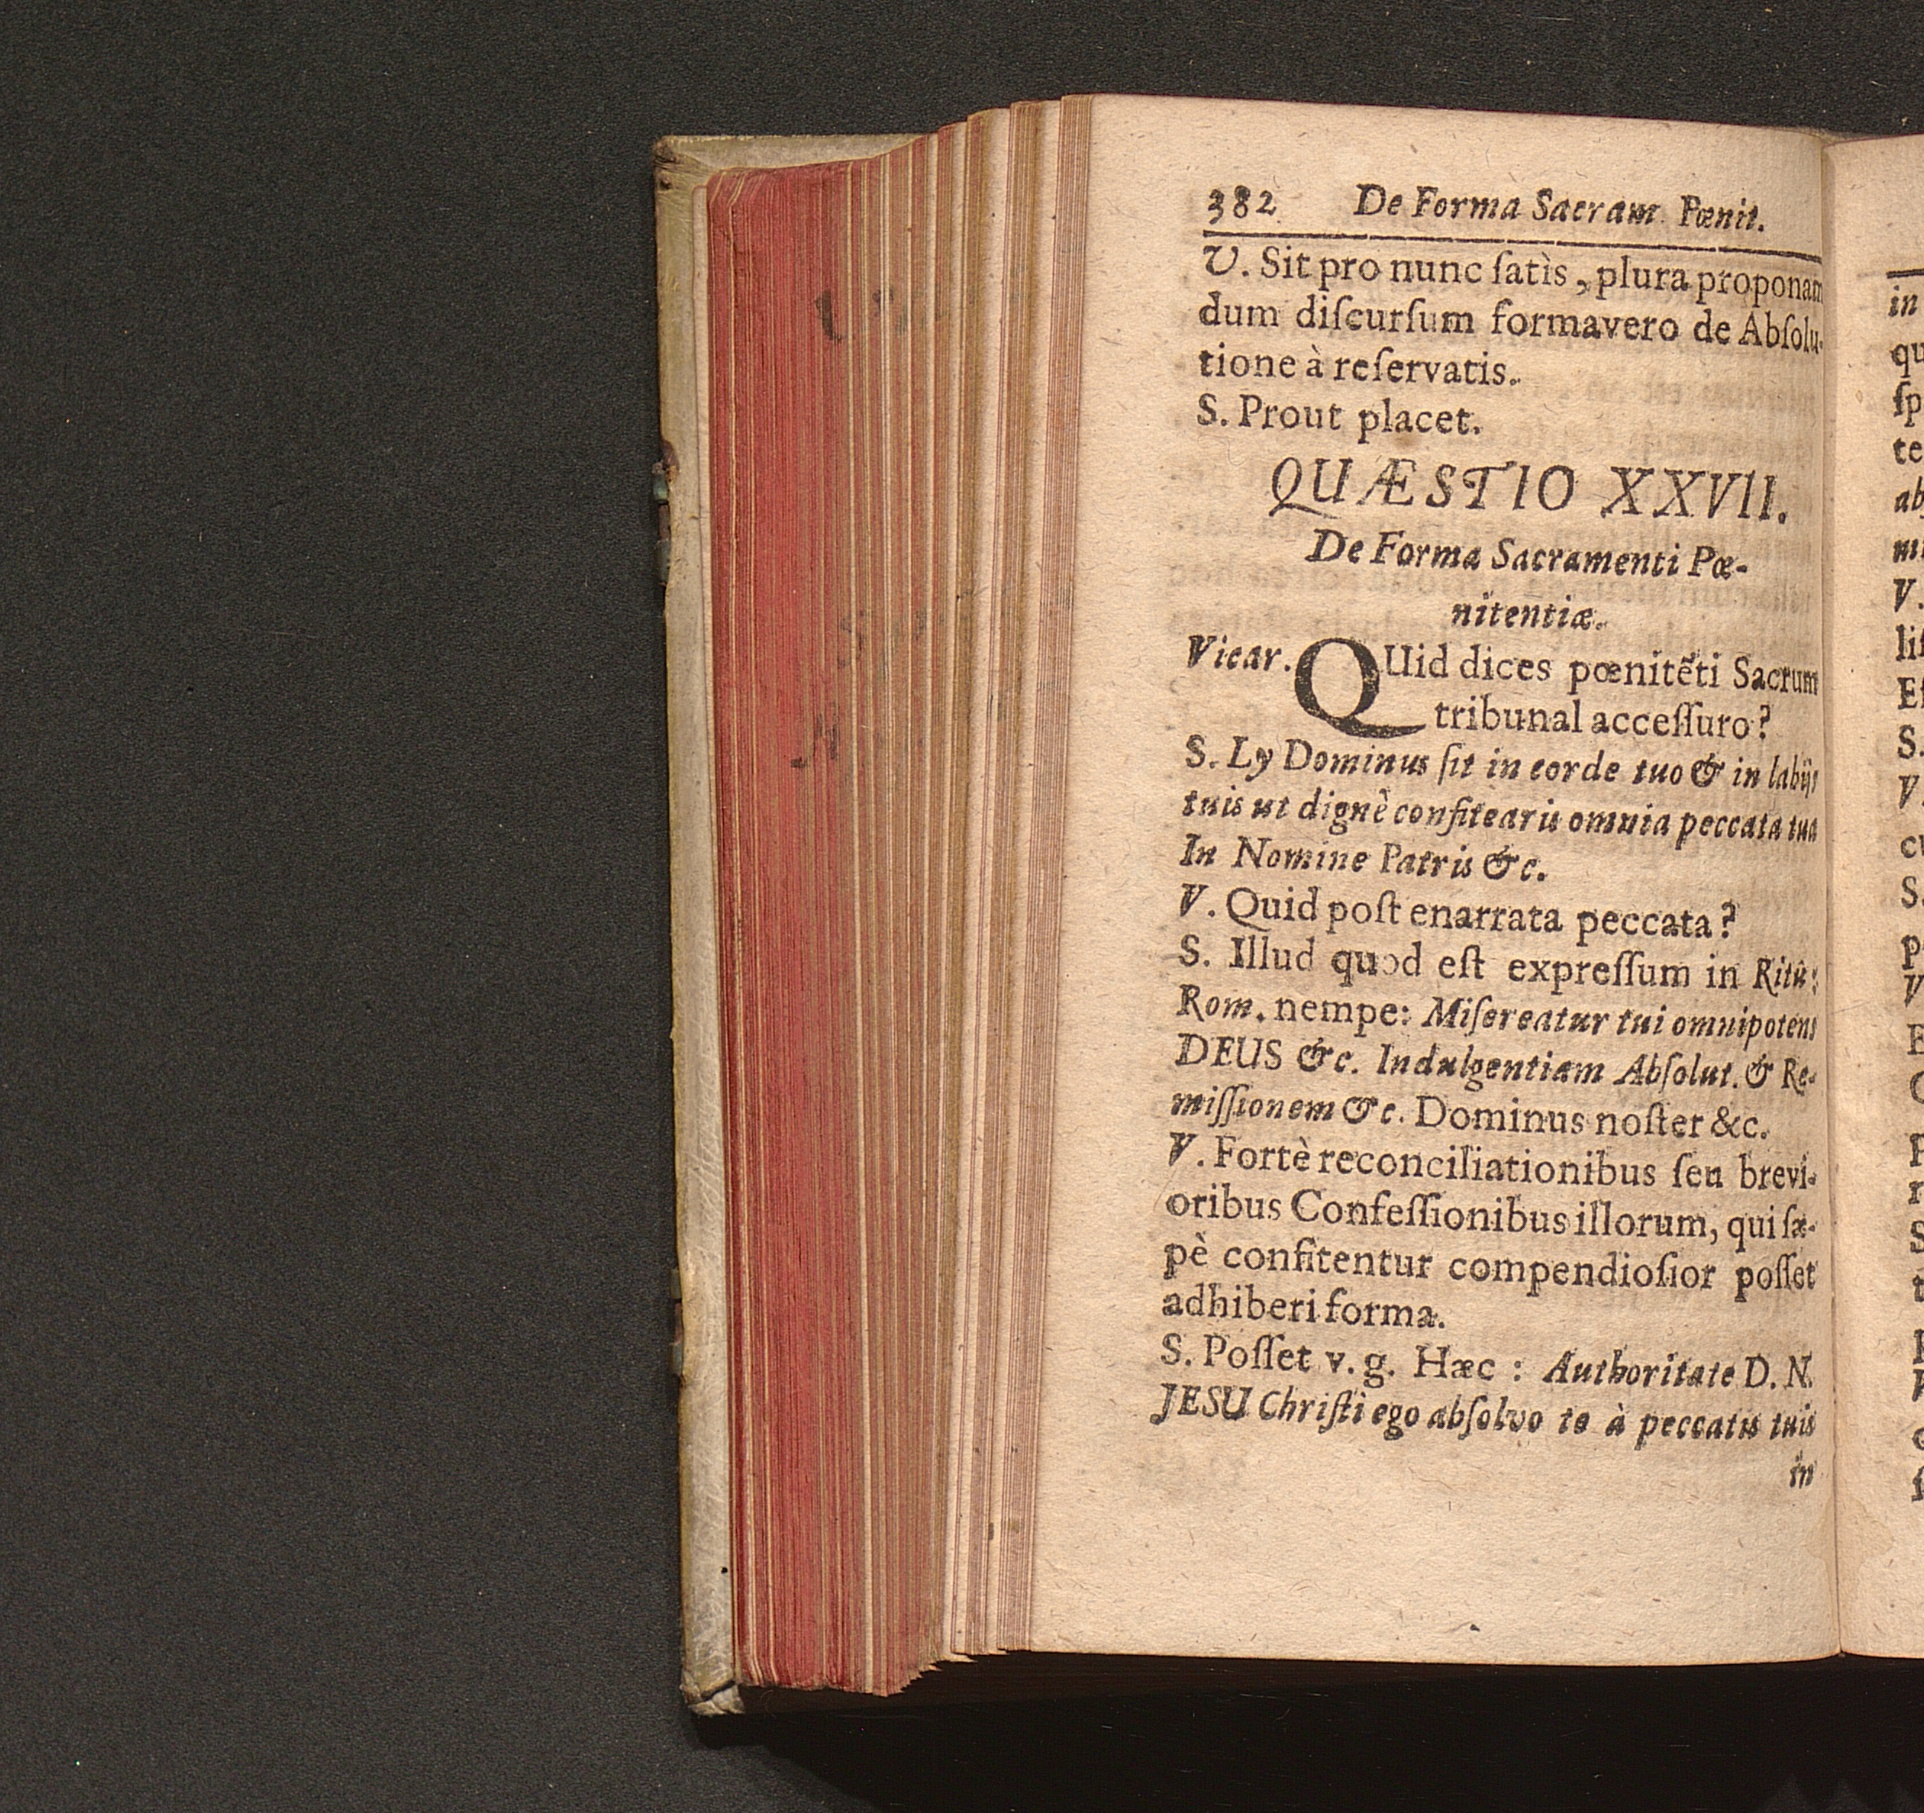 382 De Forma Sacram. Pœnit.
V. Sit pro nunc ſatìs, plura proponam
dum diſcurſum formavero de Abſolu-
tione à reſervatis.
S. Prout placet.
QUÆSTIO XXVII.
De Forma Sacramenti Pœ-
nitentiæ.
Vicar. QUid dices pœnitẽti Sacrum
tribunal acceſſuro?
S. Ly Dominus ſit in corde tuo & in labijs
tuis ut dignè confitearis omnia peccata tua
In Nomine Patris &c.
V. Quid poſt enarrata peccata?
S. Illud quod eſt expreſſum in Ritû:
Rom. nempe: Miſereatur tui omnipotens
DEUS &c. Indulgentiam Abſolut. & Re-
miſſionem &c. Dominus noſter &c.
V. Fortè reconciliationibus ſeu brevi-
oribus Confeſſionibus illorum, qui ſæ-
pè confitentur compendioſior poſſet
adhiberi forma.
S. Poſſet v. g. Hæc : Authoritate D. N.
JESU Chriſti ego abſolvo te à peccatis tuis
in